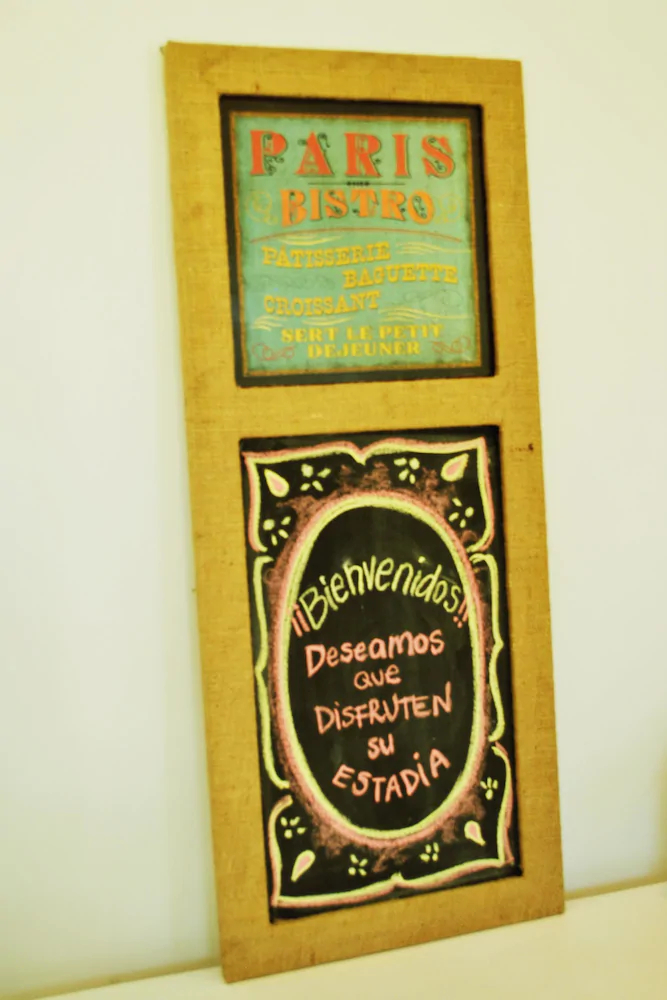 PARIS
BISTRO
PATISSERIE
BAGUETTE
CROISSANT
SERT LE PETIT
DEJEUNER
¡¡Bienvenidos!!
Deseamos
que
DISFRUTEN
su
ESTADIA